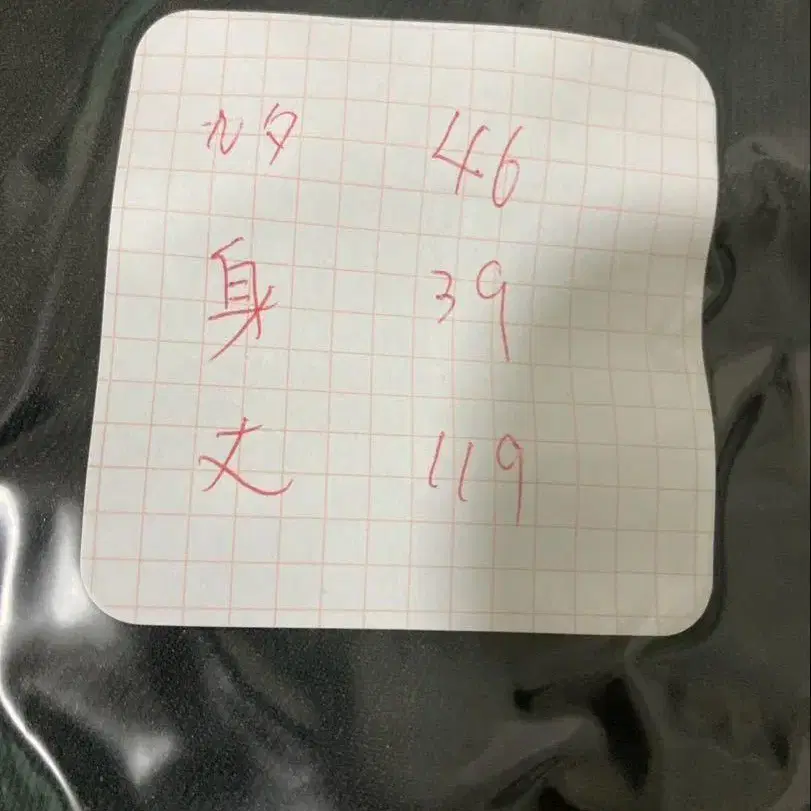 カタ 46
身 39
丈 119